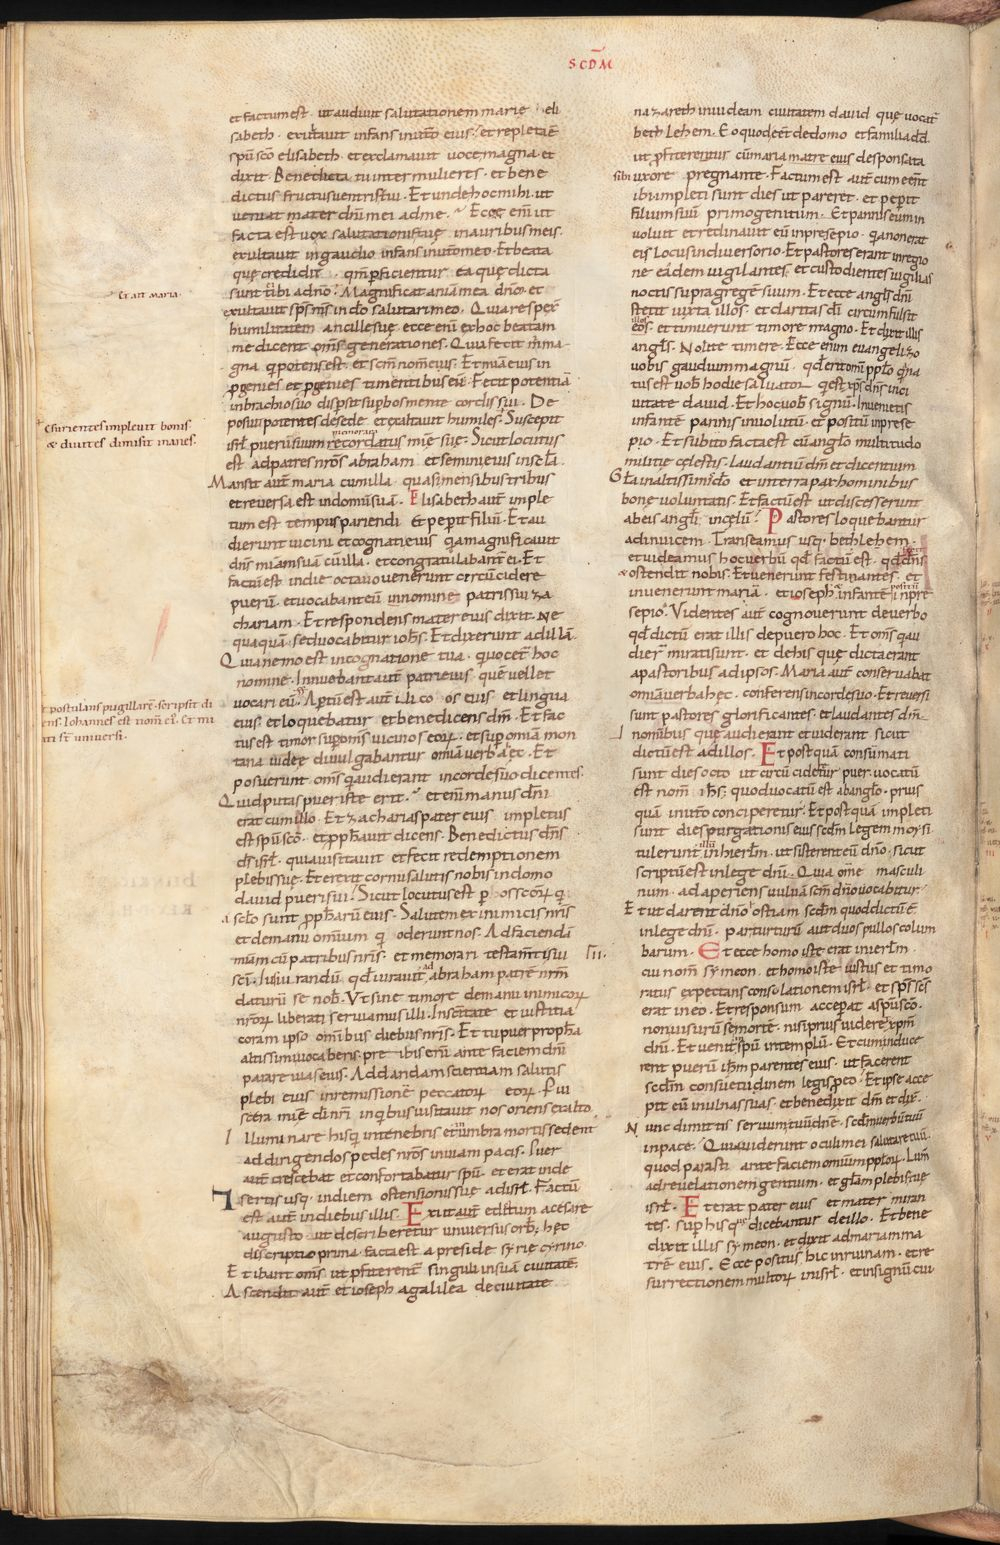 SCDM
et factum est ut audivit salutationem marię eli
sabeth exultavit infans in utero eius et repleta ē
spū scō elisabeth et exclamavit voce magna et
dixit Benedicta tu inter mulieres et bene
dictus fructus ventris tui Et unde hoc mihi ut
veniat mater dn̄i mei ad me Ecce enī ut
facta est vox salutationis tuę in auribus meis
exultavit in gaudio infans in utō meo Et beata
quę credidit qm̄ pficientur ea quę dicta
sunt tibi a dnō Magnificat anīa mea dnō et
Et ait maria
exultavit sps ms in dō salutari meo Quia respex
humilitatem ancillę suę ecce enī ex hoc beatam
me dicent om̄s generationes Quia fecit m̄ ma
gna q potens est et scm̄ nom̄ eius Et mīa eius in
pgenies et pgenies timentibus eū Fecit potentiā
in brachio suo dispsit supbos mente cordis sui De
posuit potentes de sede et exaltavit humiles Suscepit
Esurientes implevit bonis
et divites dimisit inanes
isrl̄ puerū suum recordatus mīę suę Sicut locutus
est ad patres nrōs abraham et semini eius in sēla
Mansit aut̄ maria cum illa quasi mensibus tribus
et reversa est in domū suā Elisabeth aut̄ imple
tum est tempus pariendi et pepit filiū Et au
dierunt vicini et cognati eius q̄a magnificavit
dn̄s mīam suā cū illa et congratulabant̄ ei Et
factū est in die octavo venerunt circūcidere
puerū et vocabant eū in nomine patris sui za
chariam Et respondens mater eius dixit Ne
quaquā sed vocabitur iohs̄ Et dixerunt ad illā
Quia nemo est in cognatione tua q vocet̄ hoc
nomine Innuebant aut̄ patri eius quē vellet
vocari eū Aptū est aut̄ ilico os eius et lingua
Et postulans pugillarē scripsit di
cens Iohannes est nom̄ ei Et mi
rati st̄ universi
eius et loquebatur et benedicens dm̄ Et fac
tus est timor sup om̄s vicinos eorū et sup omīa mon
tana iudeę divulgabantur omīa verba hęc Et
posuerunt om̄s q audierant in corde suo dicentes
Quid putas puer iste erit et enī manus dn̄i
erat cum illo Et zacharias pater eius impletus
est spū scō et pphavit dicens Benedictus dn̄s
ds̄ isrl̄ quia visitavit et fecit redemptionem
plebis suę Et erexit cornu salutis nobis in domo
david pueri sui Sicut locutus est p os scōrū q
a sclo sunt pphārū eius Salutem ex inimicis nr̄is
et de manu omnium q oderunt nos Ad faciendā
mīam cū patribus nr̄is et memorari testam̄ti sui
scī Iusiurandū qd̄ iuravit ad abraham patrē nrm̄
daturū se nob̄ Ut sine timore de manu inimicorū
nr̄orū liberati serviamus illi In scītate et iustitia
coram ipso omībus diebus nr̄is Et tu puer propha
altissimi vocaberis pre ibis enī ante faciem dn̄i
parare vias eius Ad dandam scientiam salutis
plebi eius in remissionē peccatorū eorū P vi
scera mię dī nr̄i in qbus visitavit nos oriens ex alto
Illuminare his q in tenebris et umbra mortis sedent
ad dirigendos pedes nrōs in viam pacis Puer
aut̄ crescebat et confortabatur spū et erat in de
sertis usq in diem ostensionis suę ad isrl̄ Factū
est aut̄ in diebus illis Exiit aut̄ edictum a cesare
augusto ut describeretur universus orb̄ hęc
discriptio prima facta est a preside syrię cyrino
Et ibant om̄s ut pfiterent̄ singuli in suā civitatē
Ascendit aut̄ et ioseph a galilea de civitate
nazareth in iudeam civitatem david quę vocat̄
bethlehem Eo quod eēt de domo et familia dd̄
ut pfiterentur cū maria matre eius desponsata
sibi uxore pregnante Factum est aut̄ cum eēnt
ibi impleti sunt dies ut pareret et pepit
filium suū primogenitum Et pannis eum in
voluit et reclinavit eū in presepio q̄a non erat
eis locus in diversorio Et pastores erant in regio
ne eadem vigilantes et custodientes vigilias
noctis supra gregē suum Et ecce angls̄ dn̄i
stetit iuxta illos et claritas dī circumfulsit
illos
eos et timuerunt timore magno Et dixit illis
angls̄ Nolite timere Ecce enim evangelizo
vobis gaudium magnū qd̄ erit omi pplo q̄a na
tus est vob̄ hodie salvator q est xps̄ dn̄s in ci
vitate david Et hoc vob̄ signū Invenietis
infantē pannis involutū et positū in prese
pio Et subito facta est cū anglo multitudo
militię cęlestis laudantiū dm̄ et dicentium
Gla in altissimis dō et in terra pax hominibus
bonę voluntatis Et factū est ut discesserunt
ab eis angli in cęlū Pastores loquebantur
ad invicem Transeamus usq bethlehem
et videamus hoc verbū qd̄ factū est qd̄ dn̄s
ostendit nobis Et venerunt festinantes et
invenerunt mariā et ioseph et infantē positū in pre
sepio Videntes aut̄ cognoverunt de verbo
qd̄ dictū erat illis de puero hoc Et om̄s q au
dier̄ mirati sunt et de his quę dicta erant
a pastoribus ad ipsos Maria aut̄ conservabat
omīa verba hęc conferens in corde suo Et reversi
sunt pastores glorificantes et laudantes dm̄
in omībus quę audierant et viderant sicut
dictū est ad illos Et postquā consūmati
sunt dies octo ut circūcideretur puer vocatū
est nom̄ ihs̄ quod vocatū est ab anglo prius
quā in utō conciperetur Et postquā impleti
sunt dies purgationis eius scdm̄ legem moysi
tulerunt illū in hierlm̄ ut sisterent eū dnō sicut
scriptū est in lege dn̄i Quia omne masculi
num adaperiens vulvā scm̄ dnō vocabitur
Et ut darent dnō ostiam scdm̄ quod dictū ē
in lege dn̄i par turturū aut duos pullos colum
barum Et ecce homo iste erat in ierlm̄
cui nom̄ symeon et homo iste iustus et timo
ratus expectans consolationem isrl̄ et sps̄ scs̄
erat in eo Et responsum accepat a spū scō
non visurū se mortē nisi prius videre xpm̄
dn̄i Et venit in spū in templū Et cum induce
rent puerū ihm̄ parentes eius ut facerent
scdm̄ consuetudinem legis p eo Et ipse acce
pit eū in ulnas suas et benedixit dm̄ et dix̄
Nunc dimittis servum tuū dn̄e scdm̄ verbū tuū
in pace Quia viderunt oculi mei salutare tuū
quod parasti ante faciem omnium pplorū Lum̄
ad revelationem gentium et glām plebis tuę
isrl̄ Et erat pater eius et mater miran
tes sup his quę dicebantur de illo Et bene
dixit illis symeon et dixit ad mariam ma
trē eius Ecce positus hic in ruinam et re
surrectionem multorū in isrl̄ et in signū cui